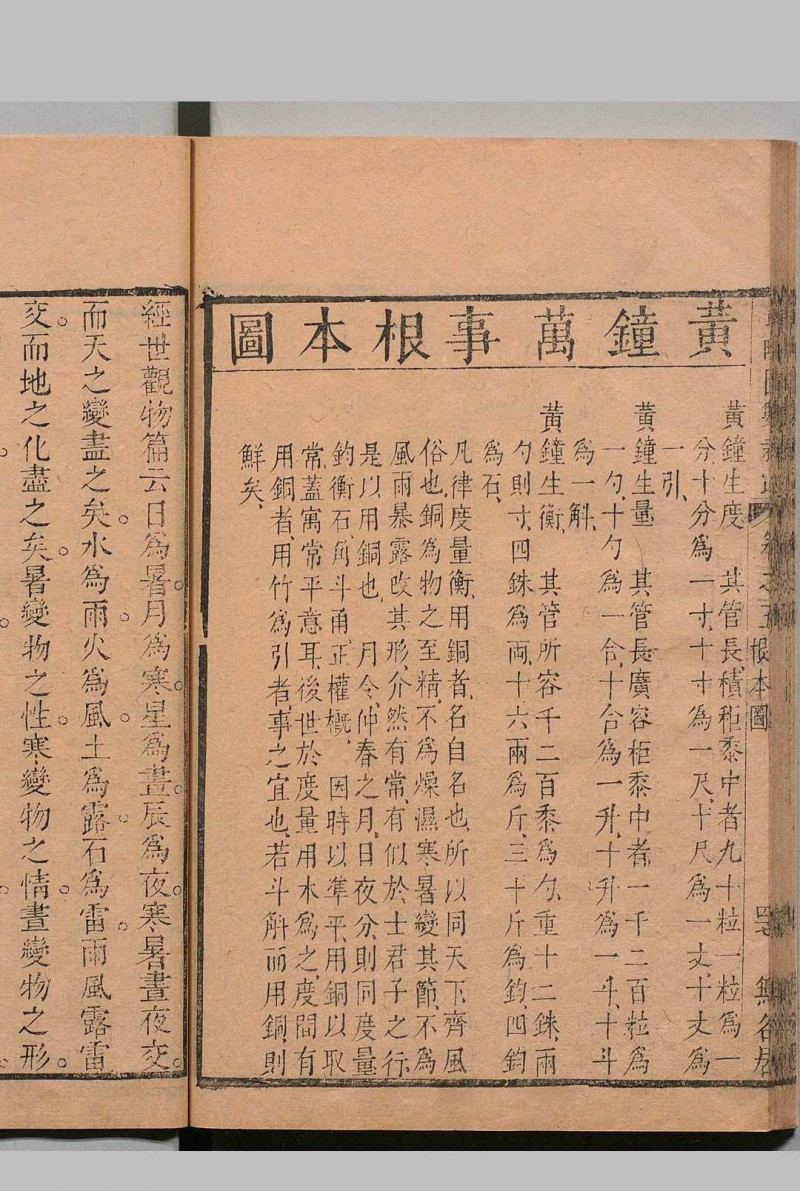 黃鐘萬事根本圖
黃鐘生度　其管長積秬黍中者九十粒一粒爲一
分、十分爲一寸、十寸爲一尺、十尺爲一丈、十丈爲
一引、
黃鐘生量　其管長廣容秬黍中者一千二百粒爲
一勺、十勺爲一合、十合爲一升、十升爲一斗、十斗
爲一斛、
黃鐘生衡　其管所容千二百黍爲勺、重十二銖、兩
勺則寸、四銖爲兩、十六兩爲斤、三十斤爲鈞、四鈞
爲石、
凡律度量衡、用銅者、名自名也、所以同天下、齊風
俗也、銅爲物之至精、不爲燥濕寒暑變其節、不爲
風雨暴露改其形、介然有常、有似於士君子之行、
是以用銅也、　月令、仲春之月、日夜分、則同度量
鈞衡石、角斗甬、正權概、　因時以準平、用銅以取
常、蓋寓常平意耳、後世於度量、用木爲之、度間有
用銅者、用竹爲引者、事之宜也、若斗斛而用銅、則
鮮矣、
根本圖
經世觀物篇云日爲暑月爲寒星爲晝辰爲夜寒暑晝夜交
而天之變盡之矣水爲雨火爲風土爲露石爲雷雨風露雷
交而地之化盡之矣暑變物之性寒變物之情晝變物之形